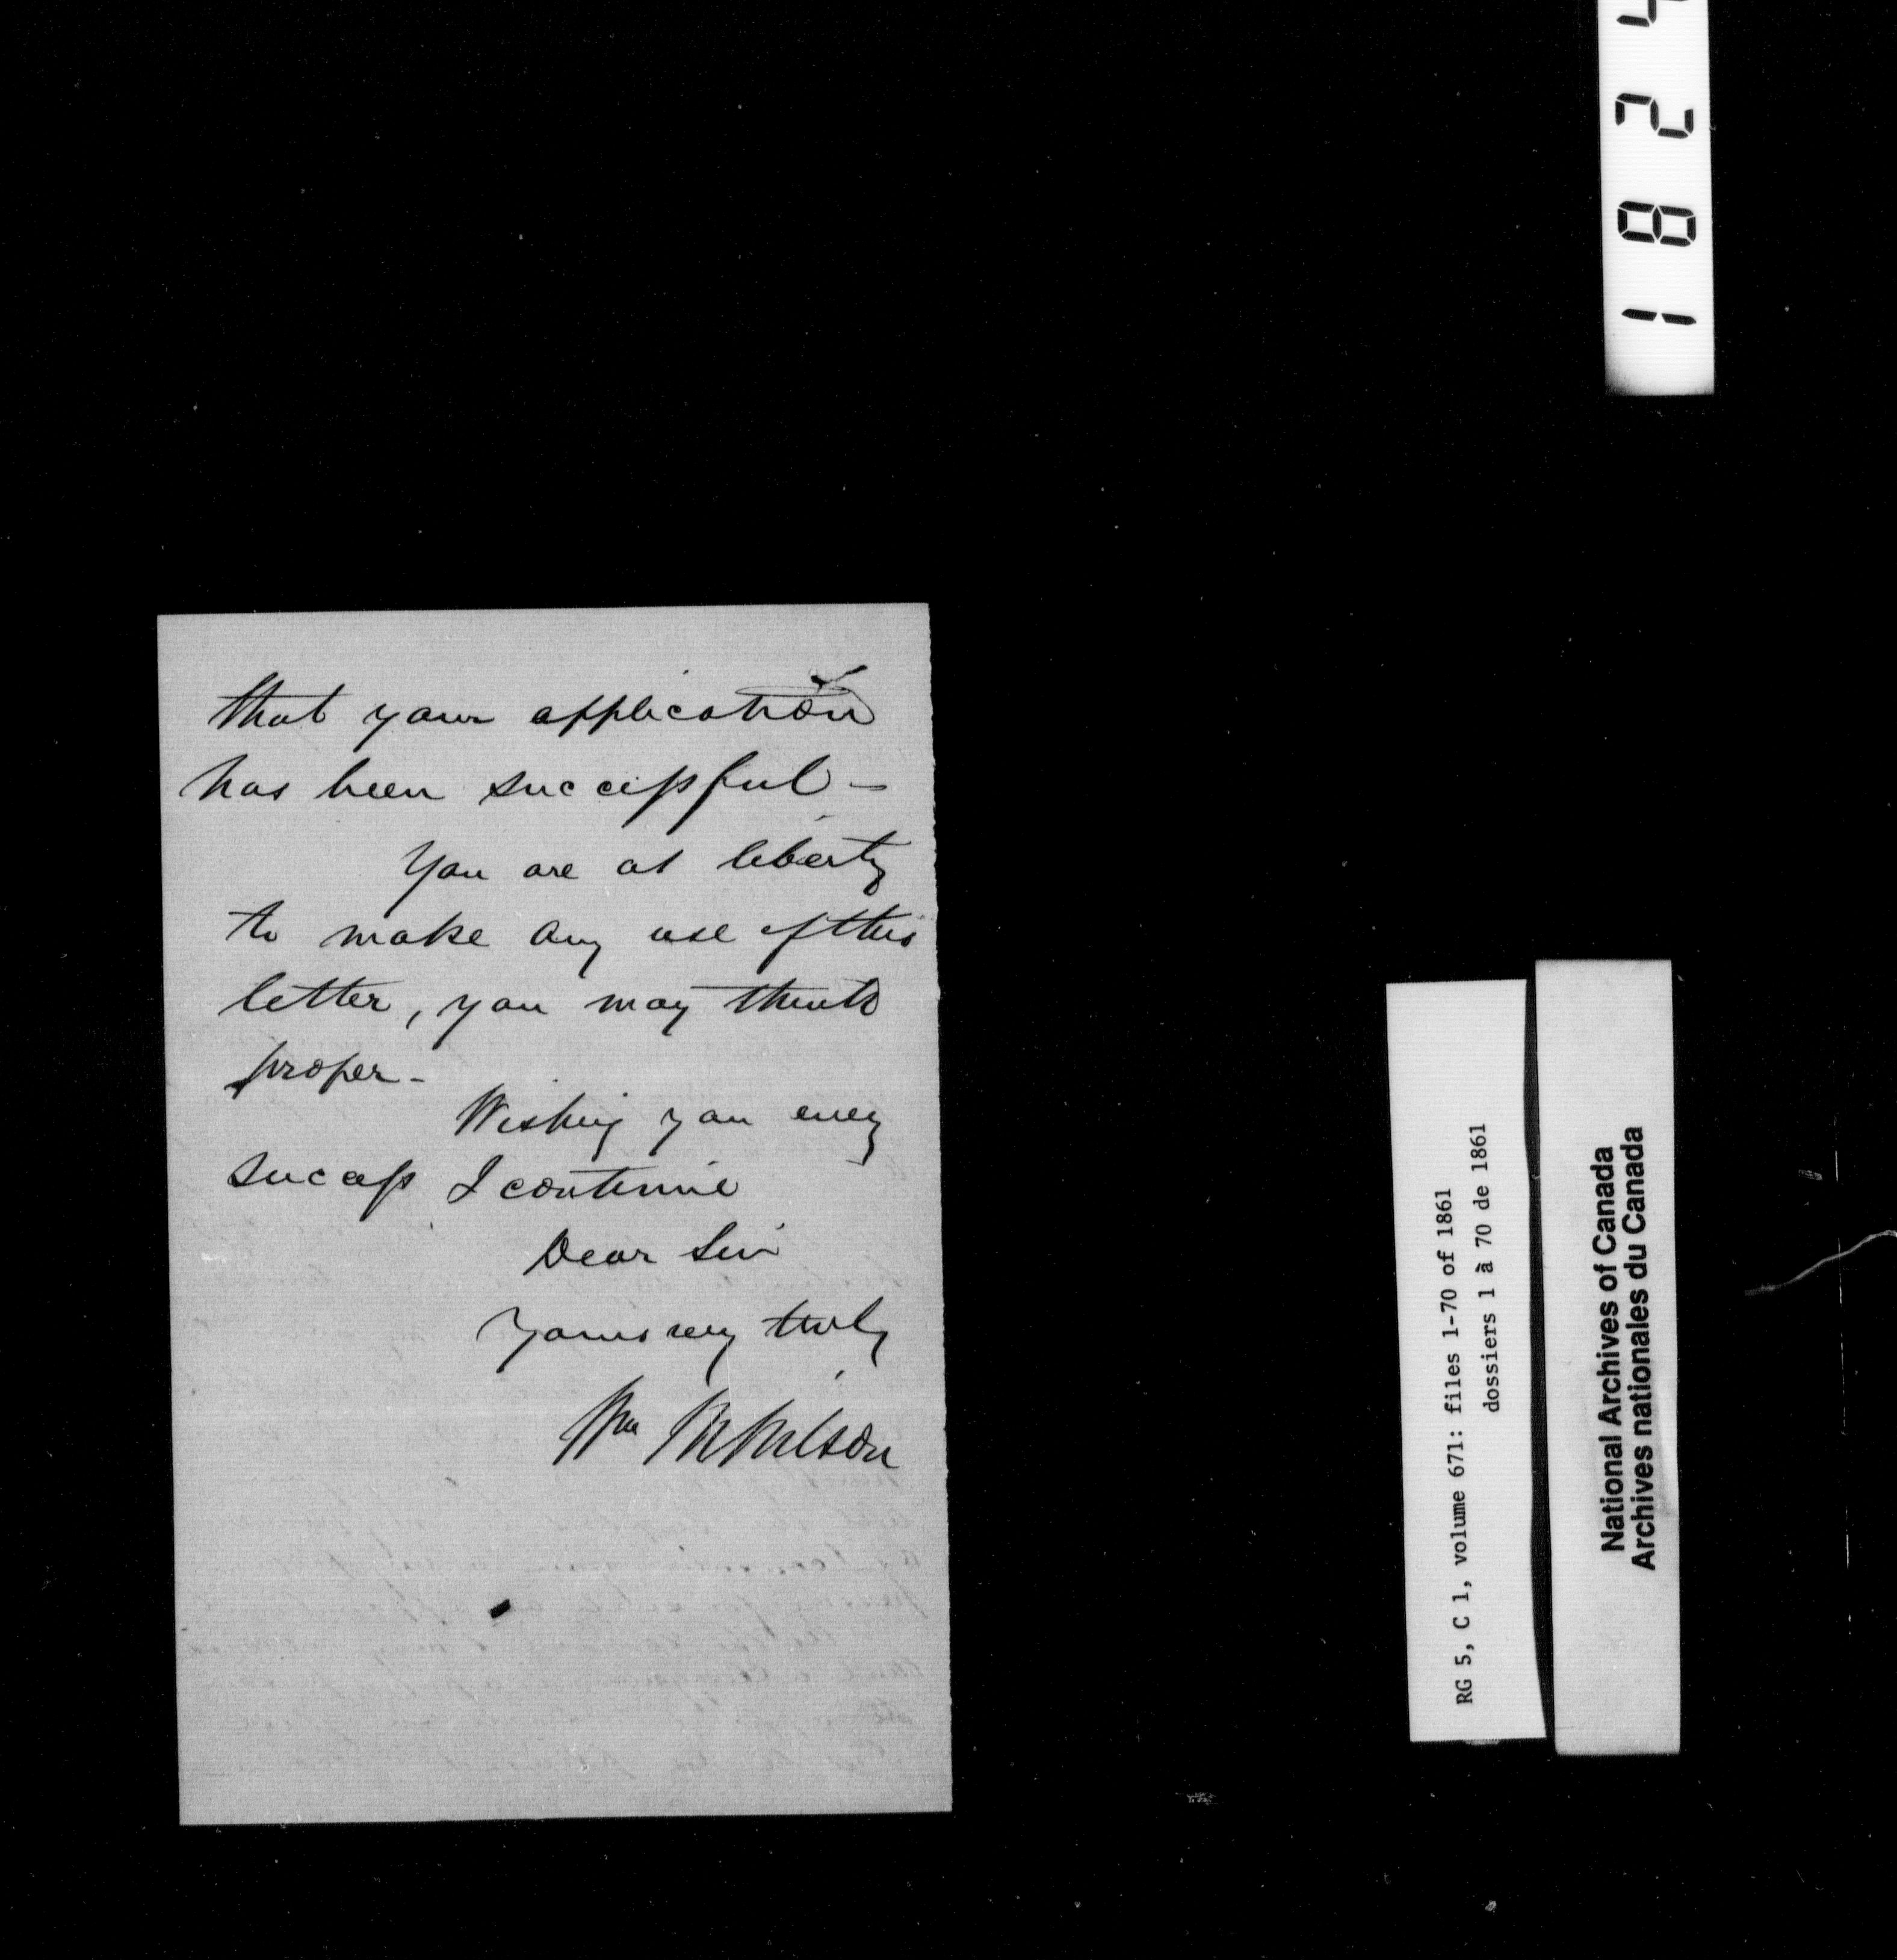 that your application
has been successful –
You are at liberty
to make any use of this
letter, you may think
proper –
Wishing you every
success I continue
Dear Sir
Yours very truly
Wm
RG 5, C 1, volume 671: files 1-70 of 1861
dossiers 1 à 70 de 1861
National Archives of Canada
Archives nationales du Canada
1 8 2 4